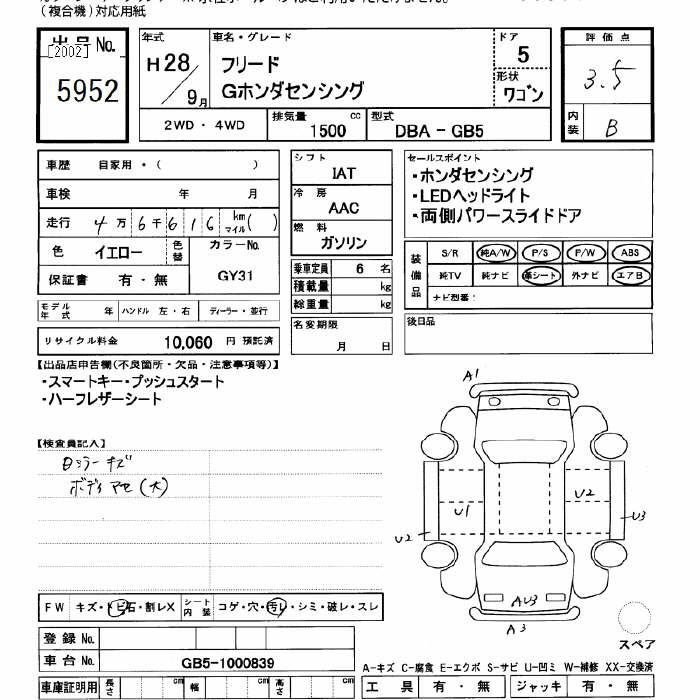 (複合機)対応用紙
出品No.
[2002]
5952
年式
H28/9月
車名・グレード
フリード
Gホンダセンシング
ドア
5
形状
ワゴン
評価点
3.5
内装
B
2WD ・ 4WD
排気量
1500 cc
型式
DBA - GB5
車歴 自家用・( )
車検 年 月
走行 4万6千616 km マイル( )
色 イエロー 色替
カラーNo.
GY31
保証書 有・無
モデル年式 年 ハンドル 左・右 ディーラー・並行
リサイクル料金 10,060 円 預託済
シフト
IAT
冷房
AAC
燃料
ガソリン
乗車定員 6 名
積載量 kg
総重量 kg
名変期限
月 日
セールスポイント
・ホンダセンシング
・LEDヘッドライト
・両側パワースライドドア
装備品
S/R 純A/W P/S P/W ABS
純TV 純ナビ 革シート 外ナビ エアB
ナビ型番:
後日品
【出品店申告欄(不良箇所・欠品・注意事項等)】
・スマートキー・プッシュスタート
・ハーフレザーシート
【検査員記入】
ロッカーキズ
ボディアセ(大)
A1
U1
U2
U2
U3
AU3
A3
スペア
FW キズ・トビ石・割レX シート内装 コゲ・穴・汚レ・シミ・破レ・スレ
登録No.
車台No. GB5-1000839
車庫証明用 長さ cm 幅 cm 高さ cm
A-キズ C-腐食 E-エクボ S-サビ U-凹ミ W-補修 XX-交換済
工具 有・無 ジャッキ 有・無